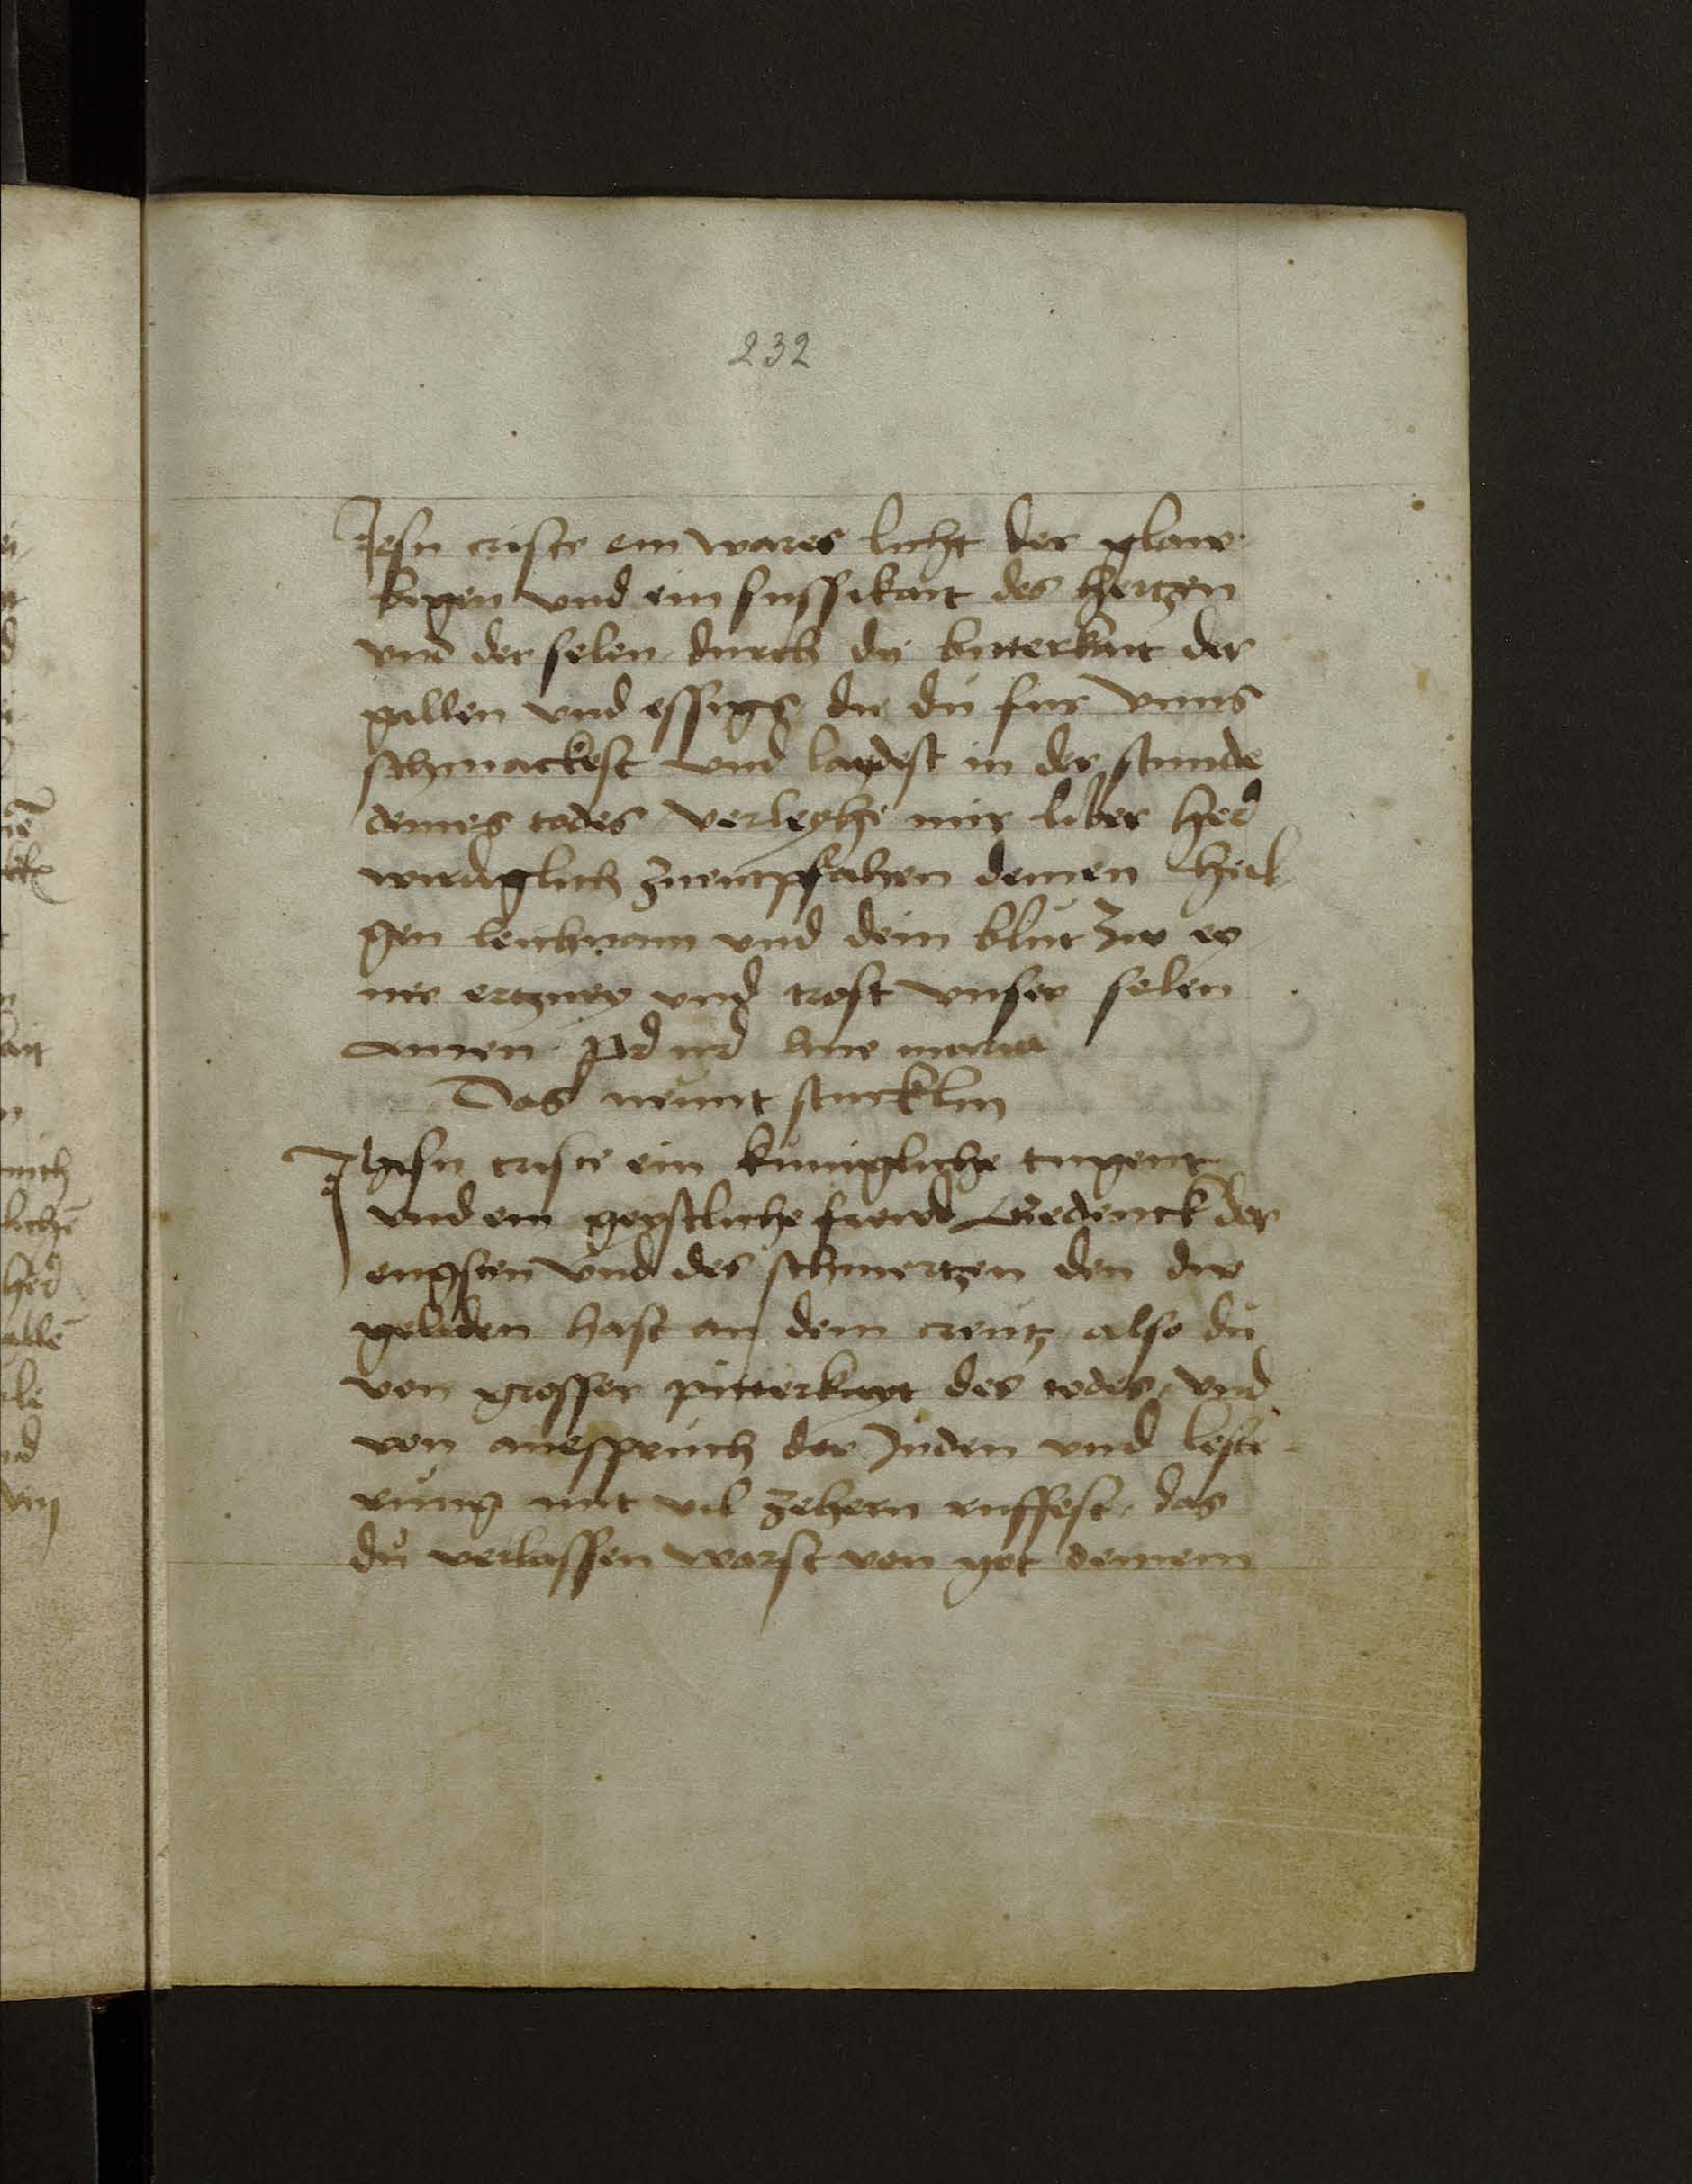 232
Jesu criste ein wares licht der glaw
bigen vnd ein sussikait des hertzen
vnd der selen durch dy bitterkait der
gallen vnd essigs die du fur vnns
schmackest vnd laydest in der stunde
deines todes verleyhe mir liber her
wirdiglich zuentpfahen deinen heil
gen leichnam vnd dein blut zw ey
ner ertzney vnd trost vnser selen
Amen ave maria
Das neunt stucklin
Jhesu criste ein kunigliche tugent
vnd ein geystliche frewd Gedenck der
engsten vnd des schmertzen den dw
geliden hast an dem creutz also du
von grosser pitterkayt des todes vnd
von anespruch der Juden vnd leste
rung mit vil zehern ruffest das
du verlassen warst von got deinem